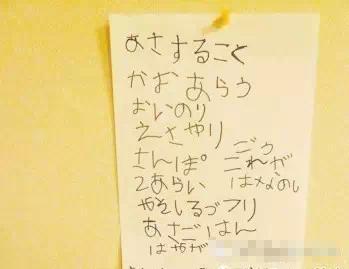 あさすること
かおあらう
おいのり
えさやり
さんぽ
2あらい
やさいしるづくり
あさごはん
はやが
ごう
これが
はなのし